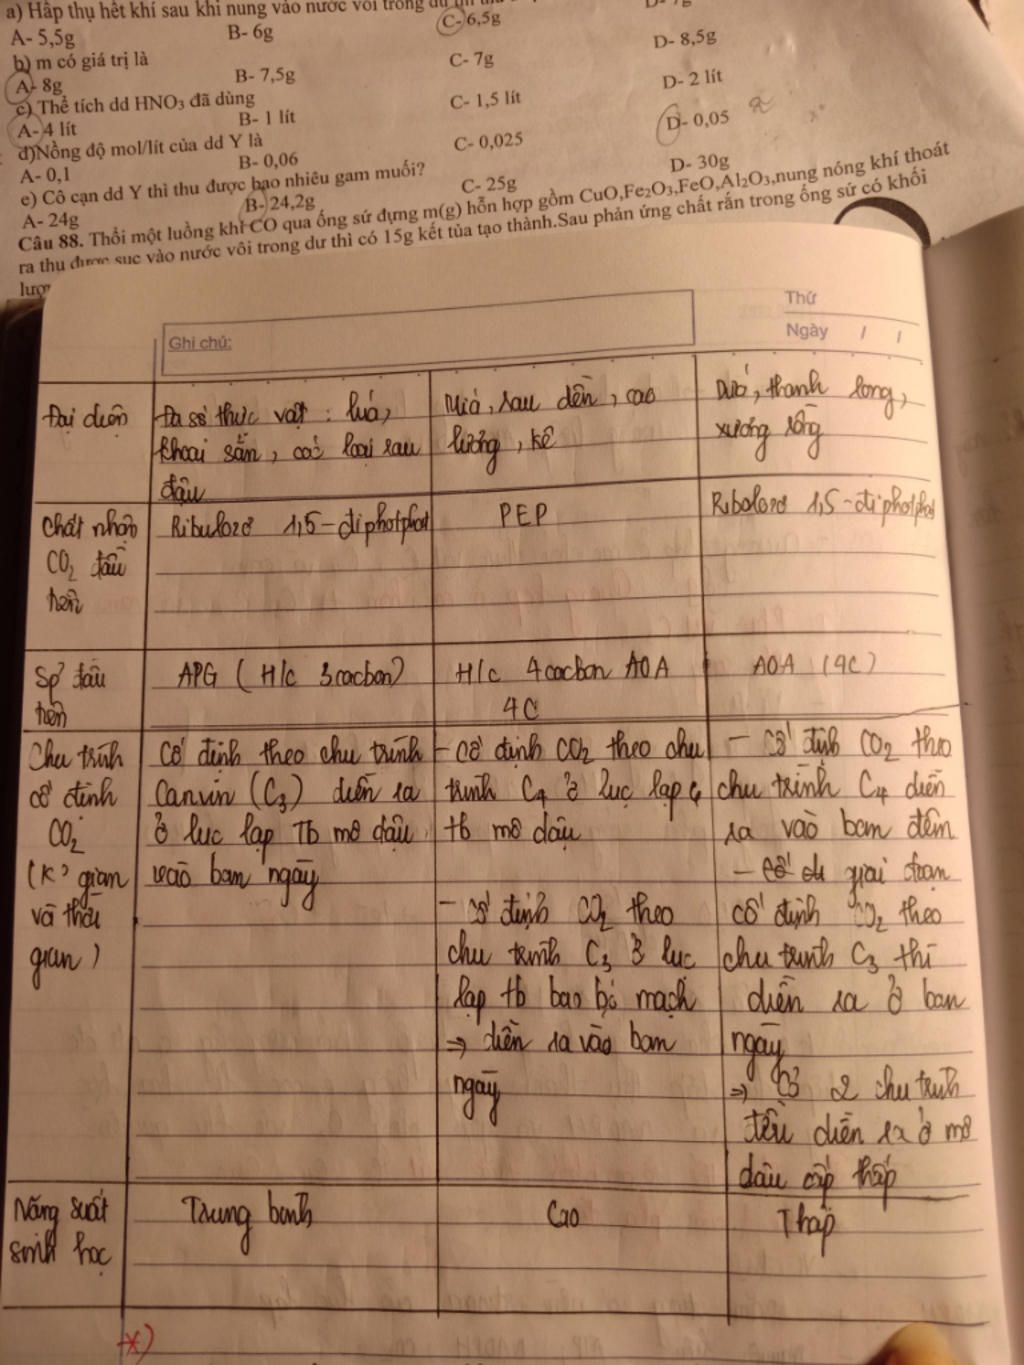 a) Hấp thụ hết khí sau khi nung vào nước vôi trong dư
A- 5,5g B- 6g C- 6,5g
b) m có giá trị là D- 8,5g
A- 8g B- 7,5g C- 7g
c) Thể tích dd HNO₃ đã dùng D- 2 lít
A- 4 lít B- 1 lít C- 1,5 lít
d)Nồng độ mol/lít của dd Y là D- 0,05
A- 0,1 B- 0,06 C- 0,025
e) Cô cạn dd Y thì thu được bao nhiêu gam muối? D- 30g
A- 24g B- 24,2g C- 25g
Câu 88. Thổi một luồng khí CO qua ống sứ đựng m(g) hỗn hợp gồm CuO,Fe₂O₃,FeO,Al₂O₃,nung nóng khí thoát
ra thu được sục vào nước vôi trong dư thì có 15g kết tủa tạo thành.Sau phản ứng chất rắn trong ống sứ có khối
Ghi chú:
Thứ
Ngày / /
Đại diện
Đa số thực vật : lúa,
khoai sắn, các loại rau
đậu
Mía, rau dền, cao
lương, kê
Dứa, thanh long,
xương rồng
Chất nhận
CO₂ đầu
tiên
Ribulozơ 1,5-điphotphat
PEP
Ribolozơ 1,5-điphotphat
Sp' đầu
tiên
APG (H/c 3 cacbon)
H/c 4cacbon AOA
4C
AOA (4C)
Chu trình
cố định
CO₂
(K² gian
và thời
gian)
Cố định theo chu trình
Canvin (C₃) diễn ra
ở lục lạp Tb mô dậu
vào ban ngày
- Cố định CO₂ theo chu
trình C₄ ở lục lạp
tb mô dậu
- Cố định CO₂ theo
chu trình C₃ ở lục
lạp tb bao bó mạch
⇒ diễn ra vào ban
ngày
- Cố định CO₂ theo
chu trình C₄ diễn
ra vào ban đêm
- giai đoạn
cố định CO₂ theo
chu trình C₃ thì
diễn ra ở ban
ngày
⇒ Cả 2 chu trình
đều diễn ra ở mô
dậu
Năng suất
sinh học
Trung bình
Cao
Thấp
*)